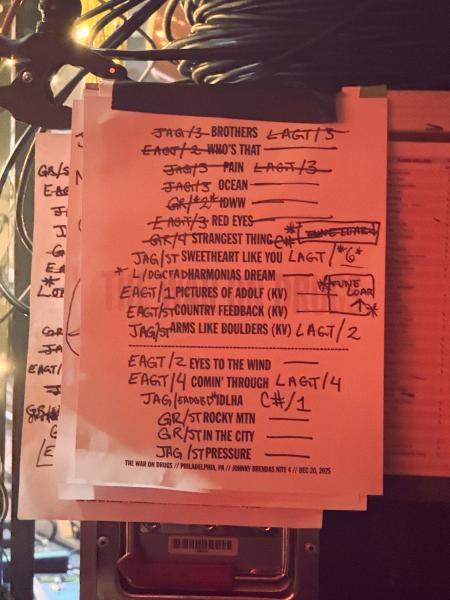 JAG/3 BROTHERS LAGT/3
EAGT/2 WHO'S THAT
JAG/3 PAIN LAGT/3
JAG/3 OCEAN
GR/*2* IDWW
EAGT/3 RED EYES
GR/4 STRANGEST THING C# * TUNE LOAR
JAG/ST SWEETHEART LIKE YOU LAGT/*6*
* L/DGCFAD HARMONIAS DREAM
EAGT/1 PICTURES OF ADOLF (KV) * TUNE LOAR ↑ *
EAGT/ST COUNTRY FEEDBACK (KV)
JAG/ST ARMS LIKE BOULDERS (KV) LAGT/2
EAGT/2 EYES TO THE WIND
EAGT/4 COMIN' THROUGH LAGT/4
JAG/EADGBD* IDLHA C#/1
GR/ST ROCKY MTN
GR/ST IN THE CITY
JAG/ST PRESSURE
THE WAR ON DRUGS // PHILADELPHIA, PA // JOHNNY BRENDAS NITE 4 // DEC 20, 2025